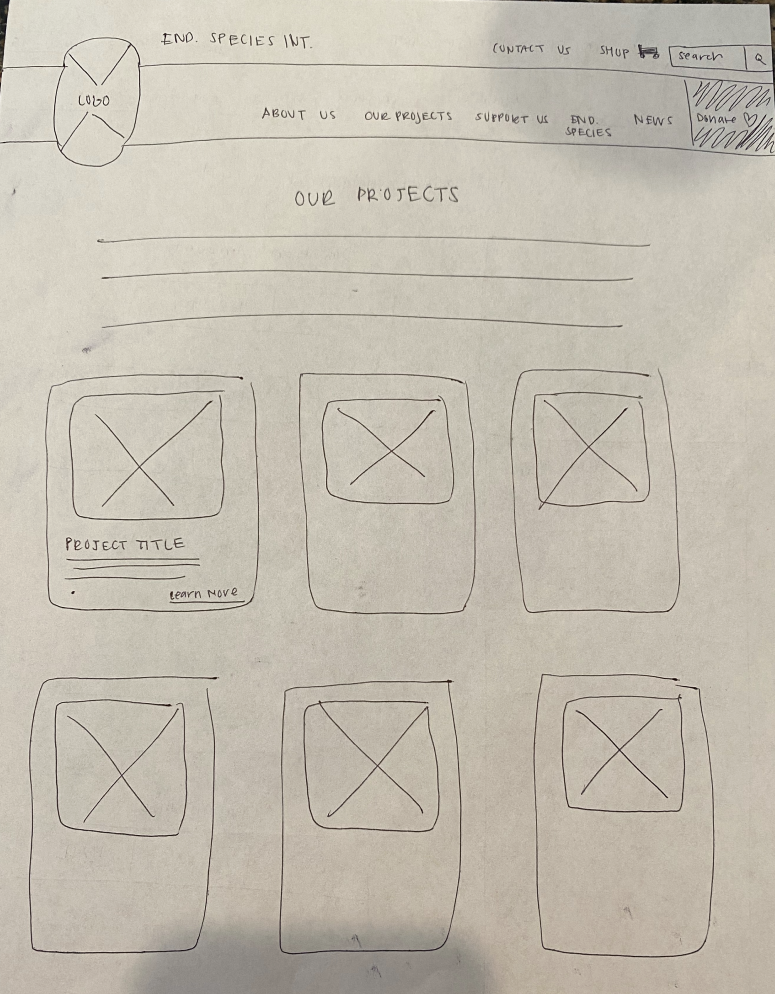 END. SPECIES INT.
CONTACT US SHOP
search
LOGO
ABOUT US OUR PROJECTS SUPPORT US END. SPECIES NEWS
Donate
OUR PROJECTS
PROJECT TITLE
Learn More